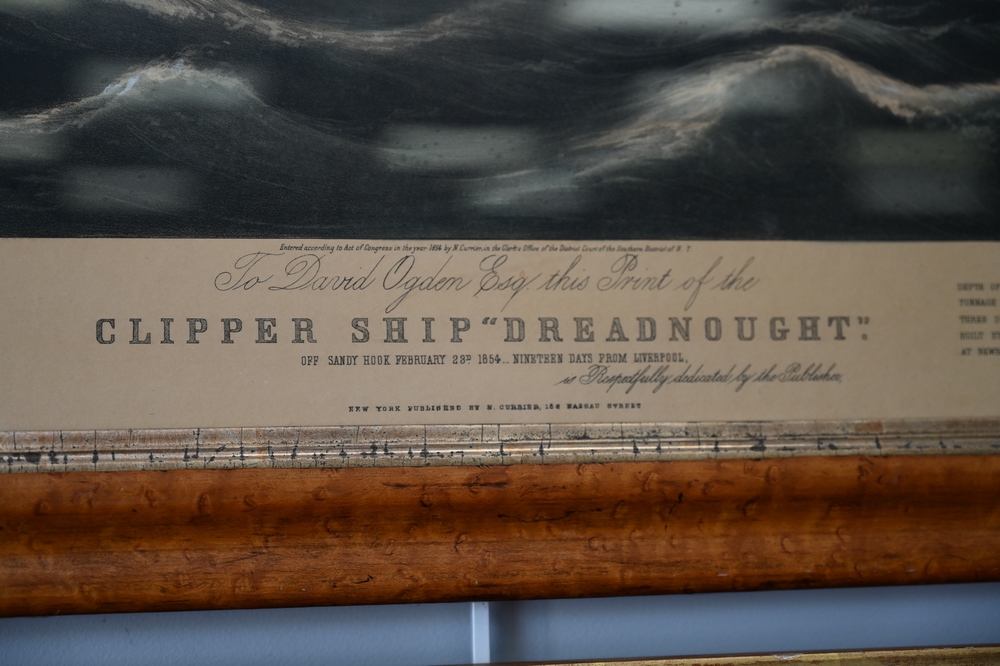 Entered according to Act of Congress in the year 1854 by N. Currier, in the Clerk's Office of the District Court of the Southern District of N. Y
To David Ogden Esq. this Print of the
CLIPPER SHIP "DREADNOUGHT".
OFF SANDY HOOK FEBRUARY 23D 1854... NINETEEN DAYS FROM LIVERPOOL,
is Respectfully dedicated by the Publisher.
NEW YORK PUBLISHED BY N. CURRIER, 152 NASSAU STREET
DEPTH OF
TONNAGE
THREE
BUILT
AT NEWB